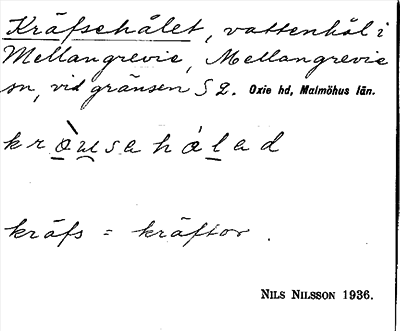 Kräfsehålet, vattenhål i
Mellangrevie, Mellangrevie
sn, vid gränsen S 2. Oxie hd, Malmöhus län.
kròu̯sahålad
kräfs = kräftor.
NILS NILSSON 1936.